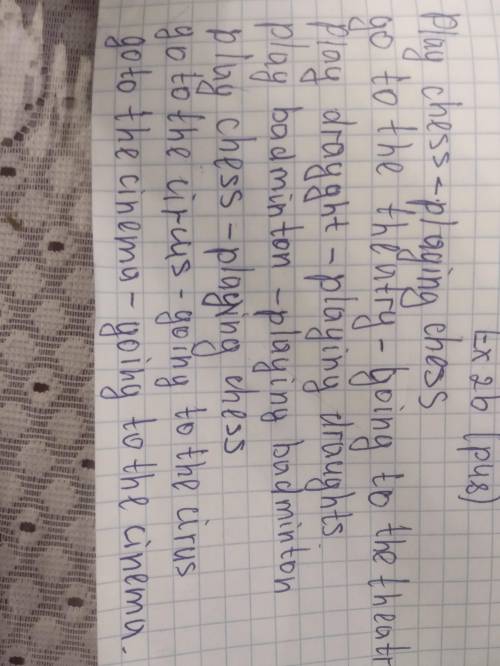 Ex 2b (p48)
play chess - playing chess
go to the theatry - going to the theatr
play drayght - playing draughts
play badminton - playing badminton
play chess - playing chess
go to the circus - going to the cirus
go to the cinema - going to the cinema.